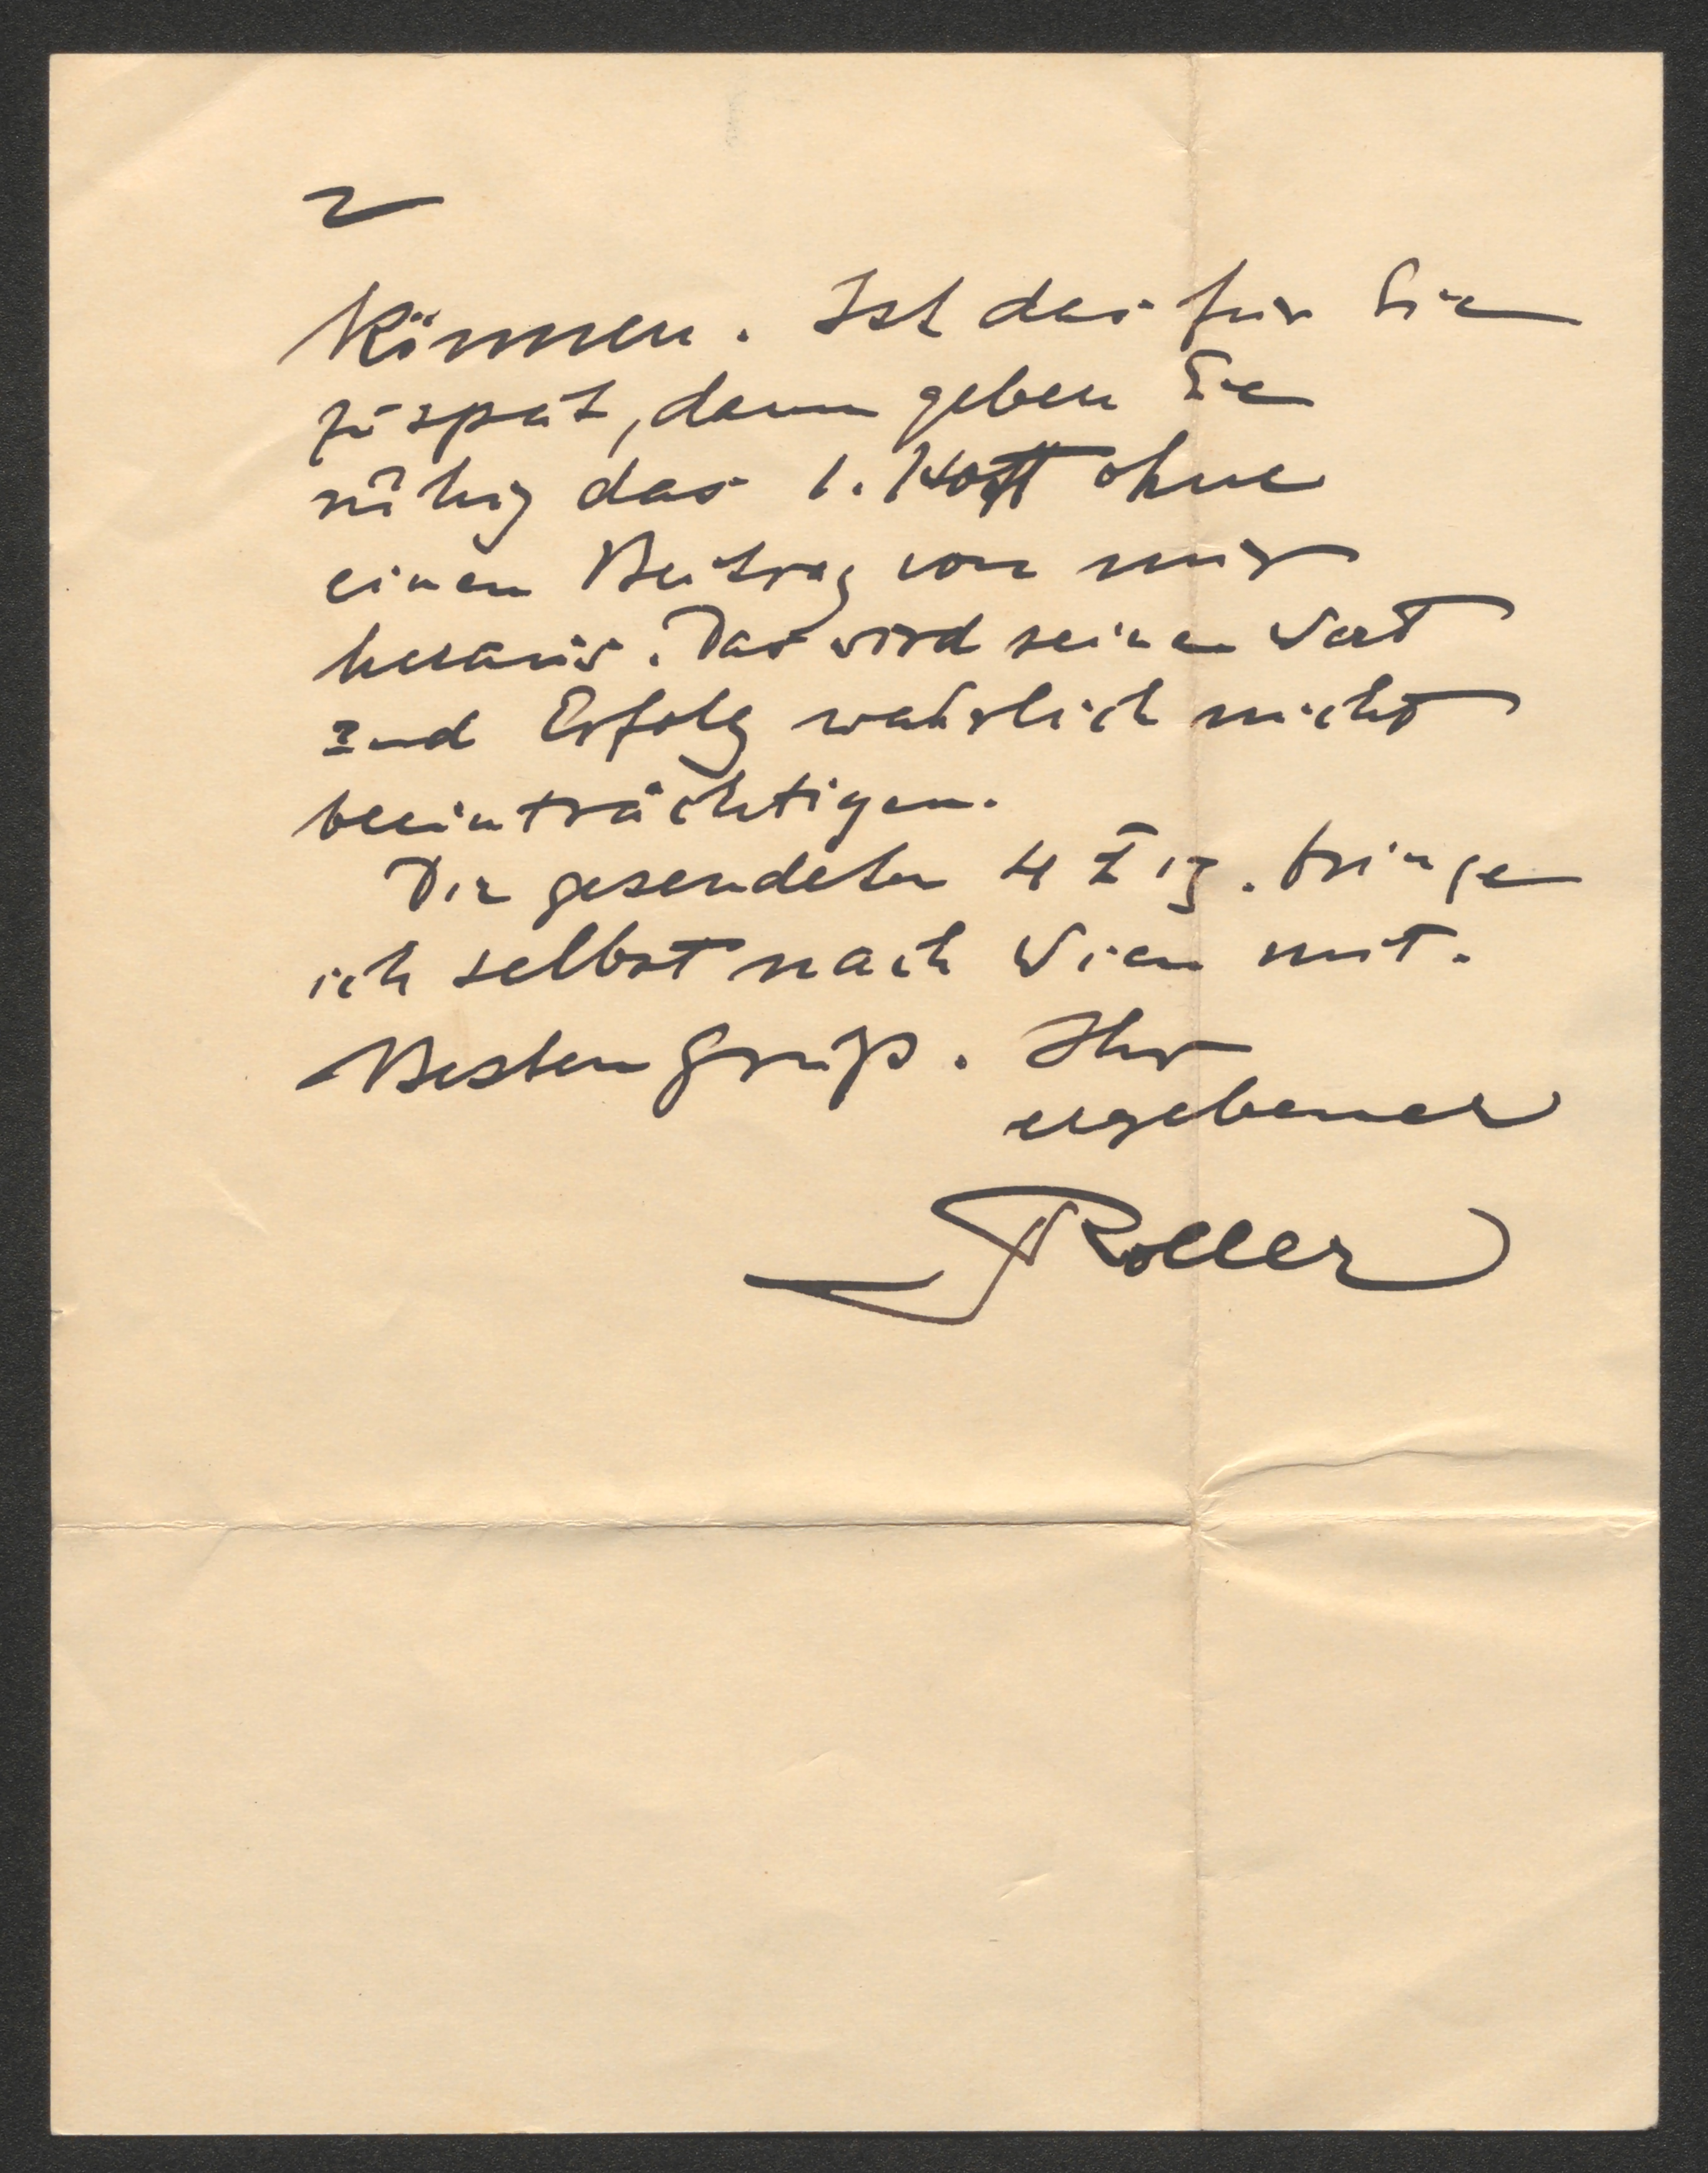 2
können. Ist das für Sie
zu spät, dann geben Sie
ruhig das 1. Heft ohne
einen Beitrag von mir
heraus. Das wird seinen Wert
und Erfolg wahrlich nicht
beeinträchtigen.
Die gesendeten 4 bringe
ich selbst nach Wien mit.
Besten Gruß. Ihr
ergebener
Roller